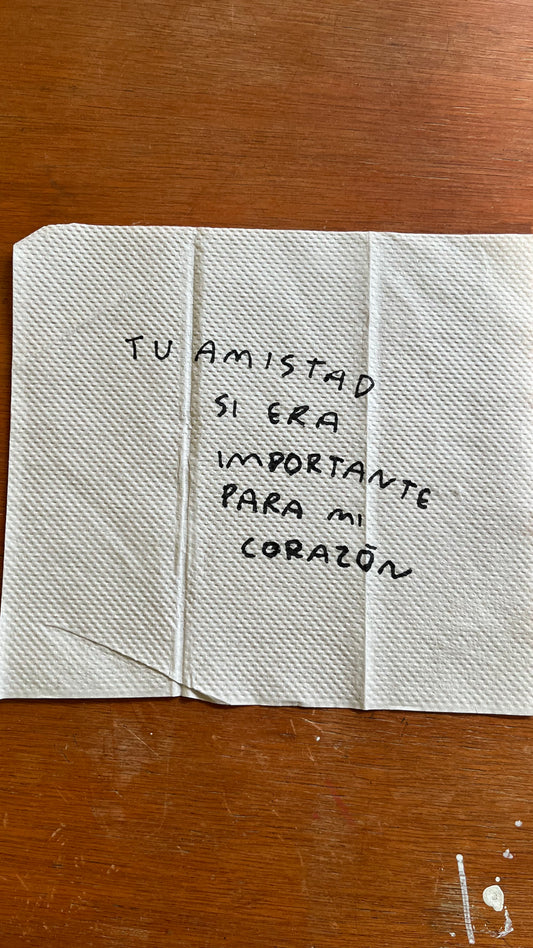 TU AMISTAD
SI ERA
IMPORTANTE
PARA MI
CORAZÓN